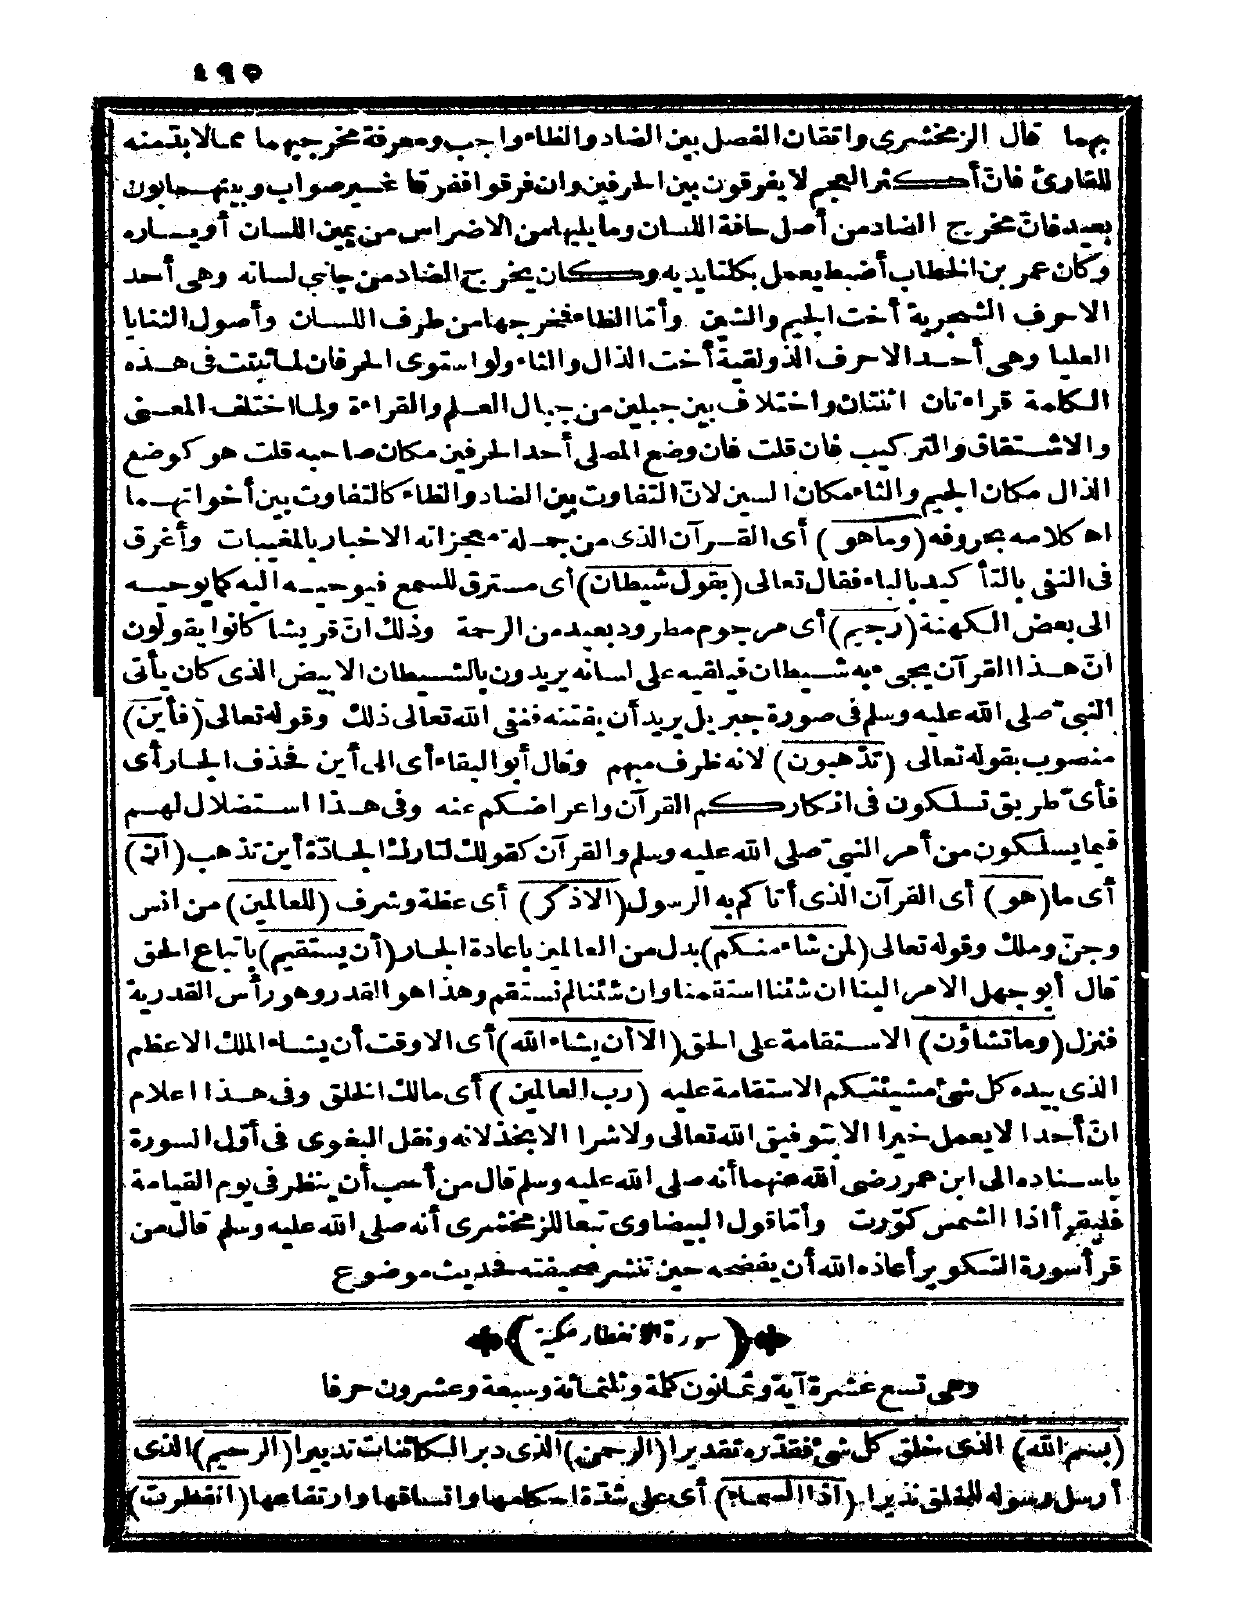 ٤٩٥
بهما قال الزمخشرى واتقان الفصل بين الضاد والظاء واجب ومعرفة مخرجيهما مما لابدّ منه
للقارئ فانّ أكثر العجم لا يفرقون بين الحرفين وان فرقوا ففرقا غير صواب وبينهما بون
بعيد فانّ مخرج الضاد من أصل حافة اللسان وما يليها من الاضراس من يمين اللسان أو يساره
وكان عمر بن الخطاب أضبط يعمل بكلتا يديه وكان يخرج الضاد من جانبى لسانه وهى أحد
الاحرف الشجرية أخت الجيم والشين وأمّا الظاء فمخرجها من طرف اللسان وأصول الثنايا
العليا وهى أحد الاحرف الذولقية أخت الذال والثاء ولو استوى الحرفان لما ثبتت فى هذه
الكلمة قراءتان اثنتان واختلاف بين جبلين من جبال العلم والقراءة ولما اختلف المعنى
والاشتقاق والتركيب فان قلت فان وضع المصلى أحد الحرفين مكان صاحبه قلت هو كوضع
الذال مكان الجيم والثاء مكان السين لانّ التفاوت بين الضاد والظاء كالتفاوت بين أخواتهما
اه كلامه بحروفه (وما هو) أى القرآن الذى من جملة معجزاته الاخبار بالمغيبات وأغرق
فى النفى بالتأكيد بالباء فقال تعالى (بقول شيطان) أى مسترق للسمع فيوحيه اليه كما يوحيه
الى بعض الكهنة (رجيم) أى مرجوم مطرود بعيد من الرحمة وذلك انّ قريشا كانوا يقولون
انّ هذا القرآن يجىء به شيطان فيلقيه على لسانه يريدون بالشيطان الابيض الذى كان يأتى
النبىّ صلى الله عليه وسلم فى صورة جبريل يريد أن يفتنه فنفى الله تعالى ذلك وقوله تعالى (فأين)
منصوب بقوله تعالى (تذهبون) لانه ظرف مبهم وقال أبو البقاء أى الى أين فحذف الجار أى
فأىّ طريق تسلكون فى انكاركم القرآن واعراضكم عنه وفى هذا استضلال لهم
فيما يسلكون من أمر النبىّ صلى الله عليه وسلم والقرآن كقولك لتارك الجادّة أين تذهب (ان)
أى ما (هو) أى القرآن الذى أتاكم به الرسول (الا ذكر) أى عظة وشرف (للعالمين) من انس
وجنّ وملك وقوله تعالى (لمن شاء منكم) بدل من العالمين باعادة الجار (أن يستقيم) باتباع الحق
قال أبو جهل الامر الينا ان شئنا استقمنا وان شئنا لم نستقم وهذا هو القدر وهو رأس القدرية
فنزل (وما تشاؤن) الاستقامة على الحق (الا أن يشاء الله) أى الا وقت أن يشاء الملك الاعظم
الذى بيده كل شئ مشيئتكم الاستقامة عليه (رب العالمين) أى مالك الخلق وفى هذا اعلام
انّ أحدا لا يعمل خيرا الا بتوفيق الله تعالى ولا شرا الا بخذلانه ونقل البغوى فى أوّل السورة
باسناده الى ابن عمر رضى الله عنهما أنه صلى الله عليه وسلم قال من أحب أن ينظر فى يوم القيامة
فليقرأ اذا الشمس كوّرت وأمّا قول البيضاوى تبعا للزمخشرى أنه صلى الله عليه وسلم قال من
قرأ سورة التكوير أعاذه الله أن يفضحه حين تنشر صحيفته فحديث موضوع
(سورة الانفطار مكية)
وهى تسع عشرة آية وثمانون كلمة وثلثمائة وسبعة وعشرون حرفا
(بسم الله) الذى خلق كل شئ فقدّره تقديرا (الرحمن) الذى دبر الكائنات تدبيرا (الرحيم) الذى
أرسل رسوله للخلق نذيرا (اذا السماء) أى على شدّة احكامها واتساقها وارتفاعها (انفطرت)